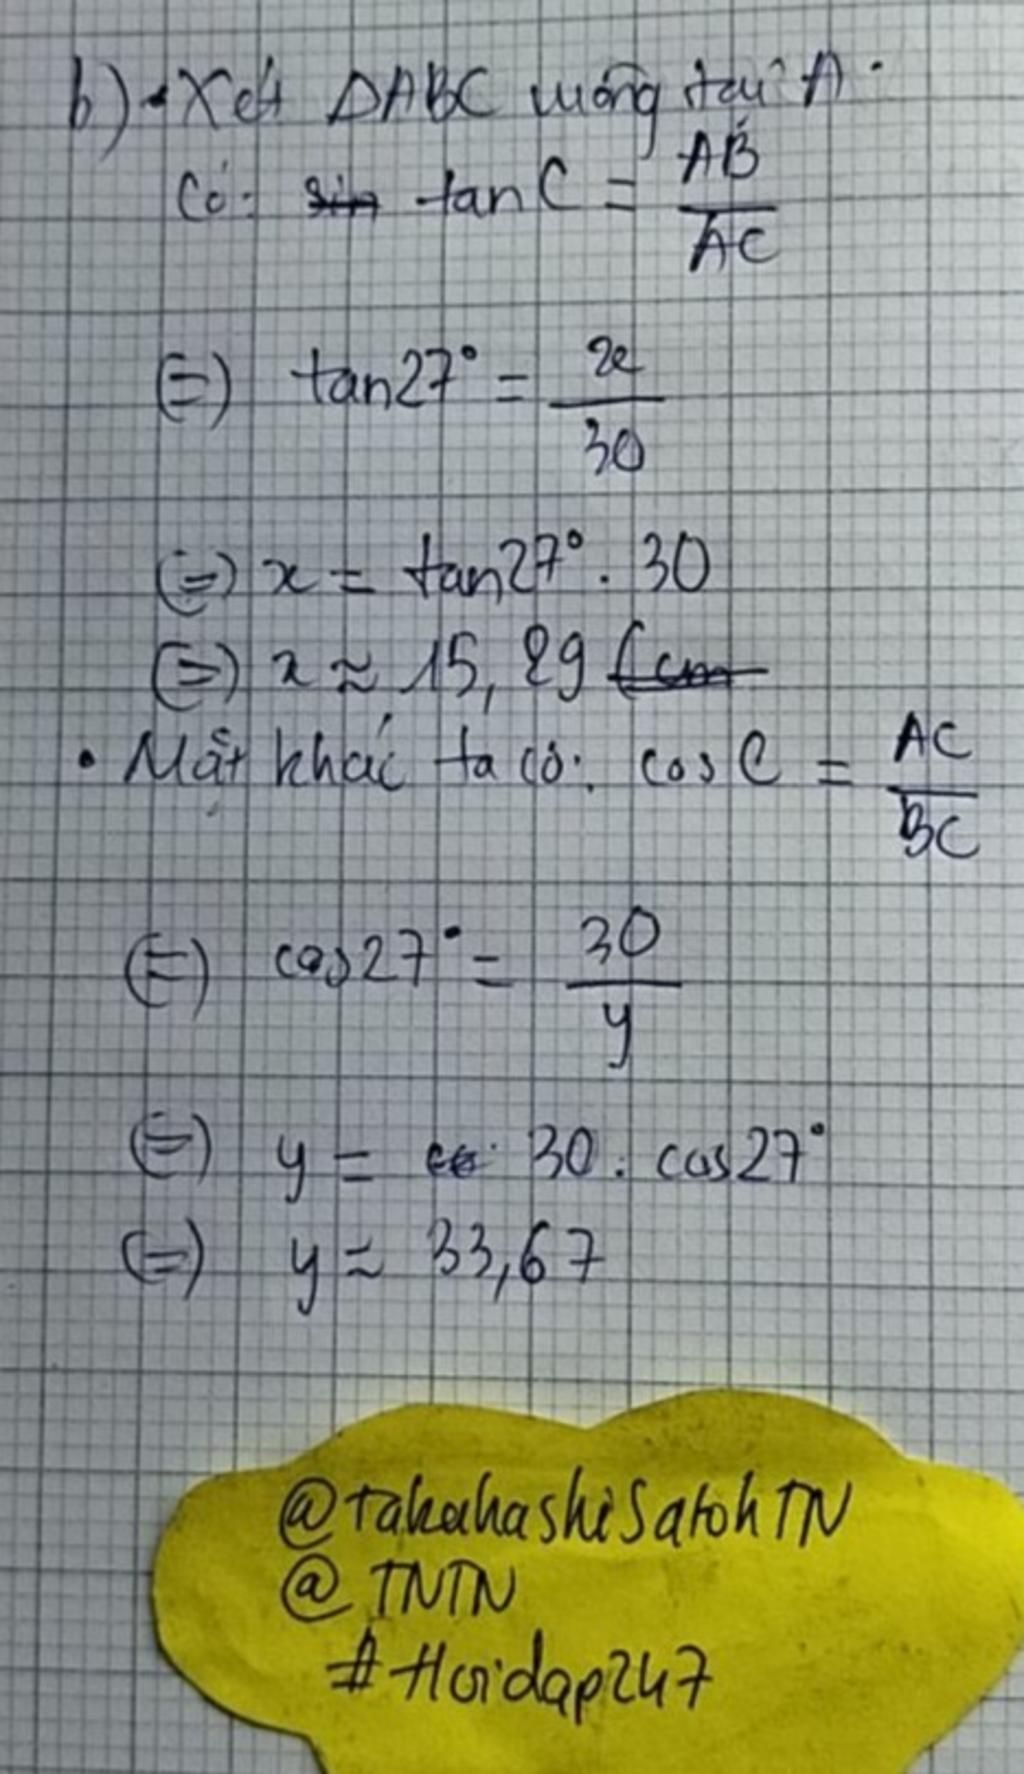 b) • Xét ΔABC vuông tại A:
Có: sin tan C = AB/AC
(=) tan27° = x/30
(=) x = tan27° . 30
(=) x ≈ 15,29 (cm
• Mặt khác ta có: cos C = AC/BC
(=) cos27° = 30/y
(=) y = 30 . cos27°
(=) y ≈ 33,67
@TakahashiSatohTN
@TNTN
#Hoidap247